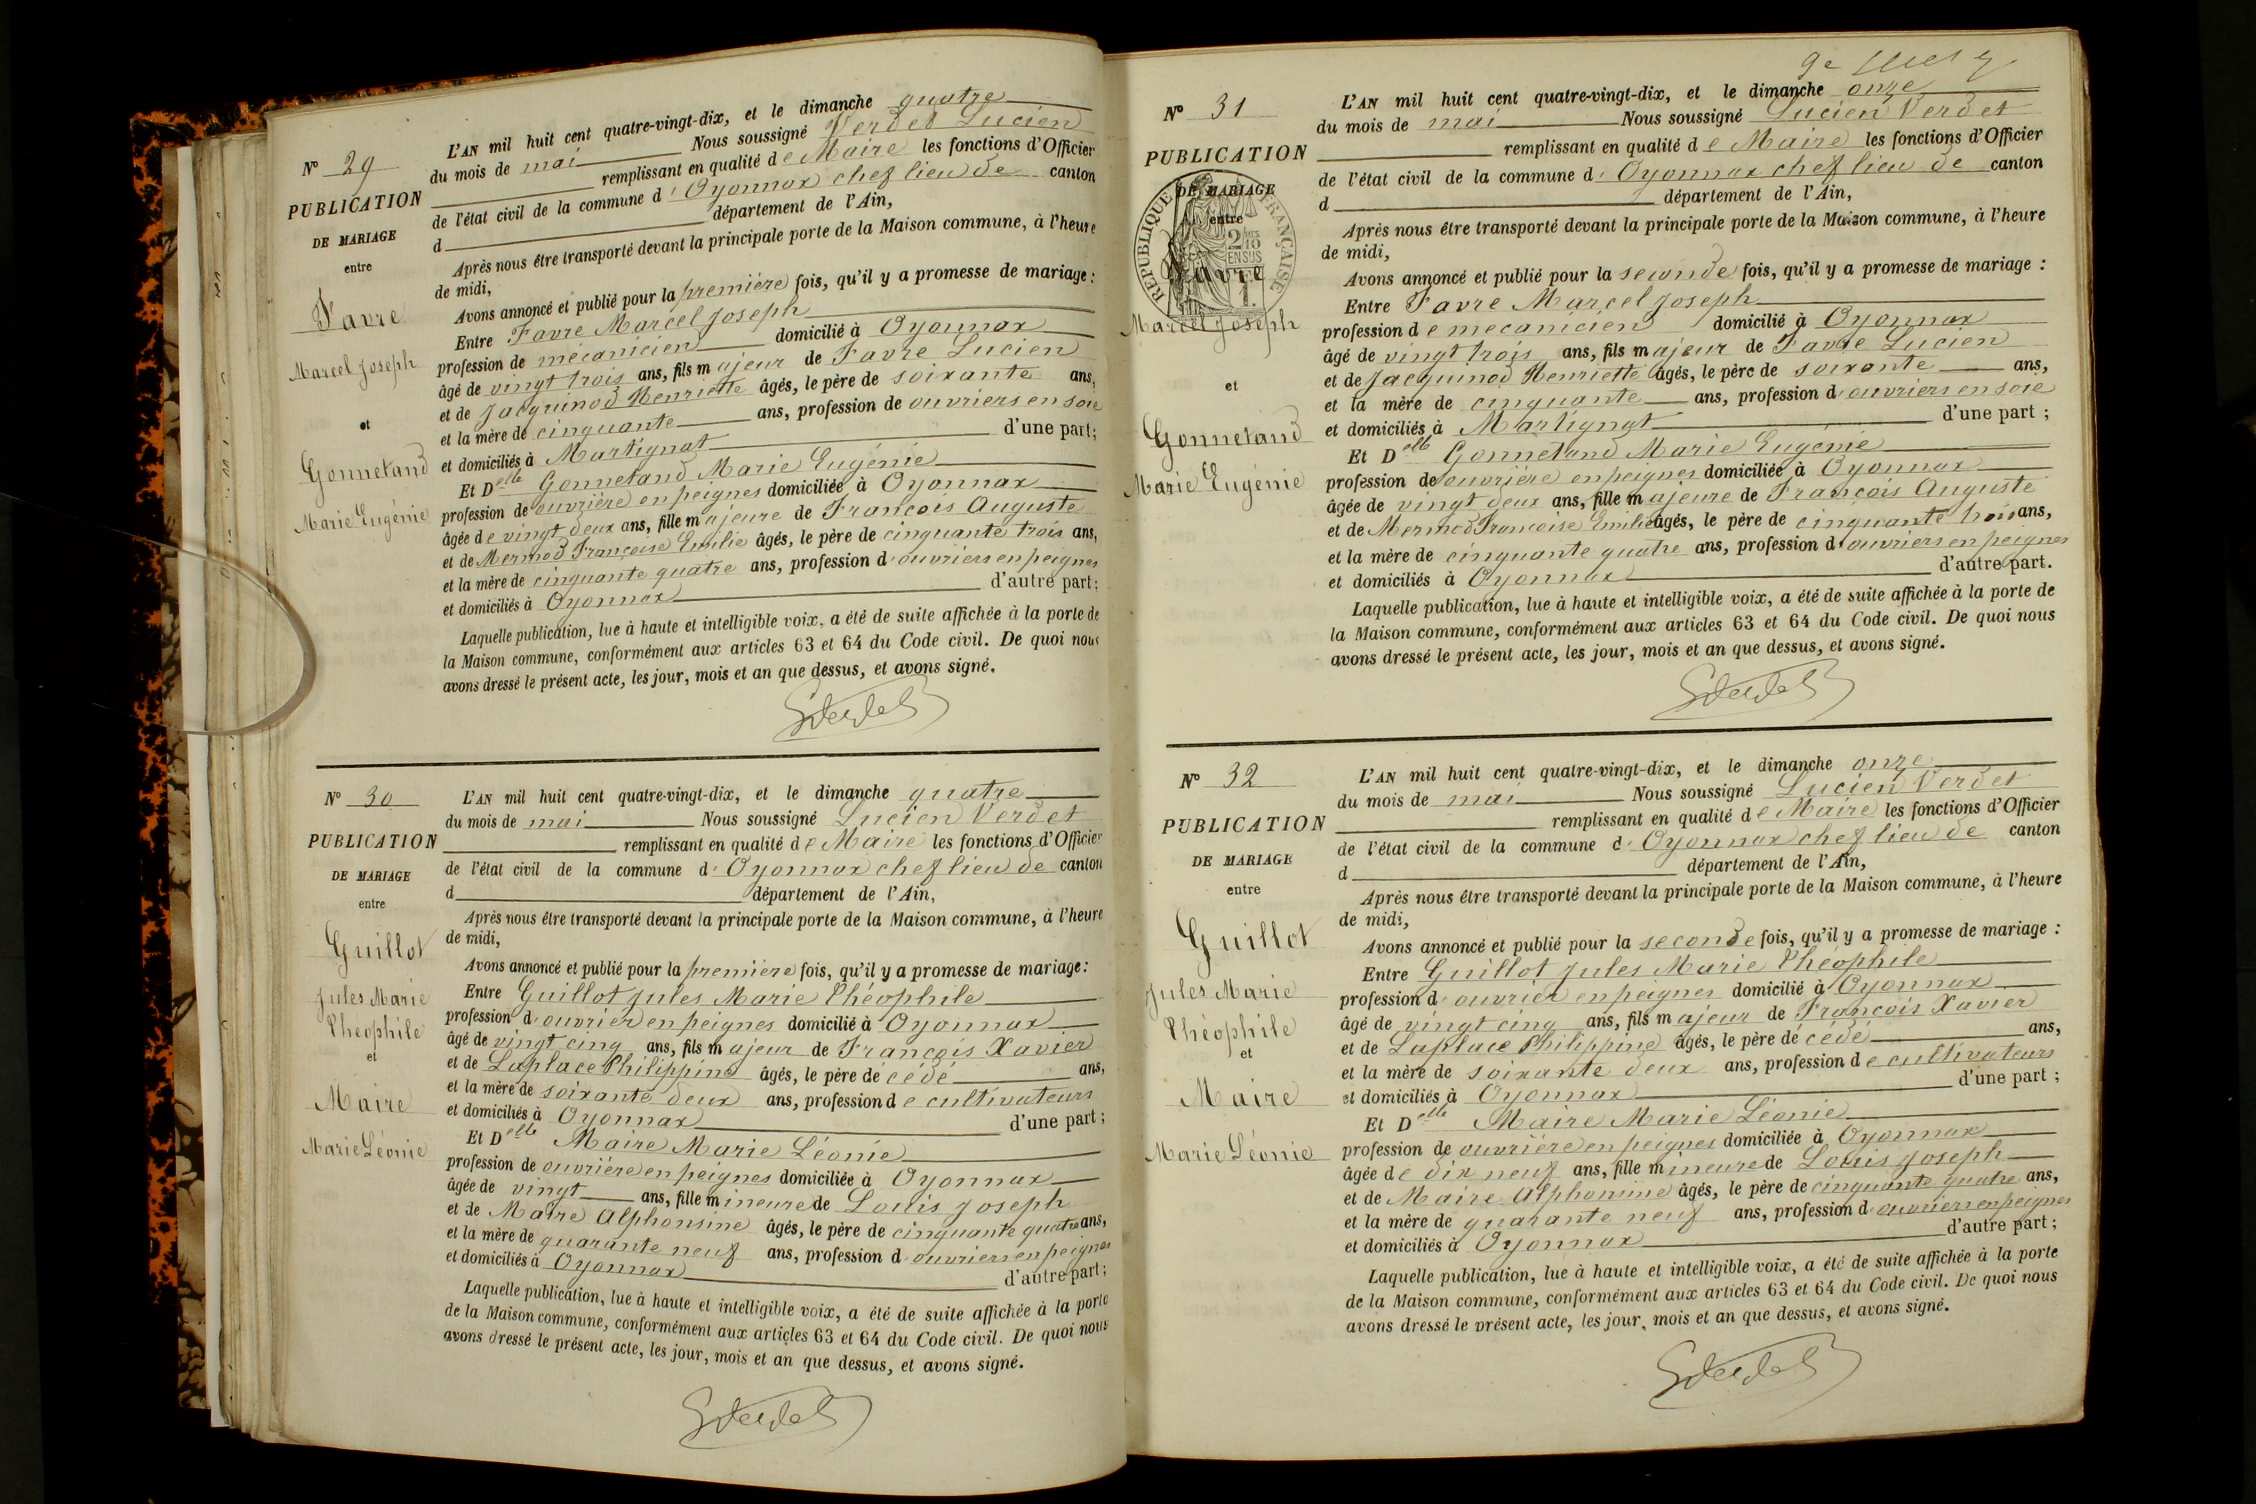 N° 29
PUBLICATION
DE MARIAGE
entre
Favre
Marcel Joseph
et
Gonnetand
Marie Eugénie
L'AN mil huit cent quatre-vingt-dix, et le dimanche quatre
du mois de mai Nous soussigné Verdet Lucien
remplissant en qualité de Maire les fonctions d'Officier
de l'état civil de la commune d' Oyonnax chef lieu de canton
d département de l'Ain,
Après nous être transporté devant la principale porte de la Maison commune, à l'heure
de midi,
Avons annoncé et publié pour la première fois, qu'il y a promesse de mariage :
Entre Favre Marcel Joseph
profession de mécanicien domicilié à Oyonnax
âgé de vingt trois ans, fils majeur de Favre Lucien
et de Jacquinod Henriette âgés, le père de soixante ans,
et la mère de cinquante ans, profession de ouvriers en soie
et domiciliés à Martignat d'une part;
Et Delle Gonnetand Marie Eugénie
profession de ouvrière en peignes domiciliée à Oyonnax
âgée de vingt deux ans, fille majeure de François Auguste
et de Mermod Françoise Emilie âgés, le père de cinquante trois ans,
et la mère de cinquante quatre ans, profession d'ouvriers en peignes
et domiciliés à Oyonnax d'autre part;
Laquelle publication, lue à haute et intelligible voix, a été de suite affichée à la porte de
la Maison commune, conformément aux articles 63 et 64 du Code civil. De quoi nous
avons dressé le présent acte, les jour, mois et an que dessus, et avons signé.
N° 30
PUBLICATION
DE MARIAGE
entre
Guillot
Jules Marie
Théophile
et
Maire
Marie Léonie
L'AN mil huit cent quatre-vingt-dix, et le dimanche quatre
du mois de mai Nous soussigné Lucien Verdet
remplissant en qualité de Maire les fonctions d'Officier
de l'état civil de la commune d' Oyonnax chef lieu de canton
d département de l'Ain,
Après nous être transporté devant la principale porte de la Maison commune, à l'heure
de midi,
Avons annoncé et publié pour la première fois, qu'il y a promesse de mariage:
Entre Guillot Jules Marie Théophile
profession d'ouvrier en peignes domicilié à Oyonnax
âgé de vingt cinq ans, fils majeur de François Xavier
et de Laplace Philippine âgés, le père décédé ans,
et la mère de soixante deux ans, profession de cultivateurs
et domiciliés à Oyonnax d'une part ;
Et Delle Maire Marie Léonie
profession de ouvrière en peignes domiciliée à Oyonnax
âgée de vingt ans, fille mineure de Louis Joseph
et de Maire Alphonsine âgés, le père de cinquante quatre ans,
et la mère de quarante neuf ans, profession d'ouvriers en peignes
et domiciliés à Oyonnax d'autre part;
Laquelle publication, lue à haute et intelligible voix, a été de suite affichée à la porte
de la Maison commune, conformément aux articles 63 et 64 du Code civil. De quoi nous
avons dressé le présent acte, les jour, mois et an que dessus, et avons signé.
N° 31
PUBLICATION
DE MARIAGE
entre
RÉPUBLIQUE FRANÇAISE
2/10 EN SUS
Favre
Marcel Joseph
et
Gonnetand
Marie Eugénie
L'AN mil huit cent quatre-vingt-dix, et le dimanche onze
du mois de mai Nous soussigné Lucien Verdet
remplissant en qualité de Maire les fonctions d'Officier
de l'état civil de la commune d' Oyonnax chef lieu de canton
d département de l'Ain,
Après nous être transporté devant la principale porte de la Maison commune, à l'heure
de midi,
Avons annoncé et publié pour la seconde fois, qu'il y a promesse de mariage :
Entre Favre Marcel Joseph
profession de mecanicien domicilié à Oyonnax
âgé de vingt trois ans, fils majeur de Favre Lucien
et de Jacquinod Henriette âgés, le père de soixante ans,
et la mère de cinquante ans, profession d'ouvriers en soie
et domiciliés à Martignat d'une part ;
Et Delle Gonnetand Marie Eugénie
profession de ouvrière en peignes domiciliée à Oyonnax
âgée de vingt deux ans, fille majeure de François Auguste
et de Mermod Françoise Emilie âgés, le père de cinquante trois ans,
et la mère de cinquante quatre ans, profession d'ouvriers en peignes
et domiciliés à Oyonnax d'autre part.
Laquelle publication, lue à haute et intelligible voix, a été de suite affichée à la porte de
la Maison commune, conformément aux articles 63 et 64 du Code civil. De quoi nous
avons dressé le présent acte, les jour, mois et an que dessus, et avons signé.
N° 32
PUBLICATION
DE MARIAGE
entre
Guillot
Jules Marie
Théophile
et
Maire
Marie Léonie
L'AN mil huit cent quatre-vingt-dix, et le dimanche onze
du mois de mai Nous soussigné Lucien Verdet
remplissant en qualité de Maire les fonctions d'Officier
de l'état civil de la commune d' Oyonnax chef lieu de canton
d département de l'Ain,
Après nous être transporté devant la principale porte de la Maison commune, à l'heure
de midi,
Avons annoncé et publié pour la seconde fois, qu'il y a promesse de mariage :
Entre Guillot Jules Marie Théophile
profession d'ouvrier en peignes domicilié à Oyonnax
âgé de vingt cinq ans, fils majeur de François Xavier
et de Laplace Philippine âgés, le père décédé ans,
et la mère de soixante deux ans, profession de cultivateurs
et domiciliés à Oyonnax d'une part ;
Et Delle Maire Marie Léonie
profession de ouvrière en peignes domiciliée à Oyonnax
âgée de dix neuf ans, fille mineure de Louis Joseph
et de Maire Alphonsine âgés, le père de cinquante quatre ans,
et la mère de quarante neuf ans, profession d'ouvriers en peignes
et domiciliés à Oyonnax d'autre part ;
Laquelle publication, lue à haute et intelligible voix, a été de suite affichée à la porte
de la Maison commune, conformément aux articles 63 et 64 du Code civil. De quoi nous
avons dressé le présent acte, les jour, mois et an que dessus, et avons signé.